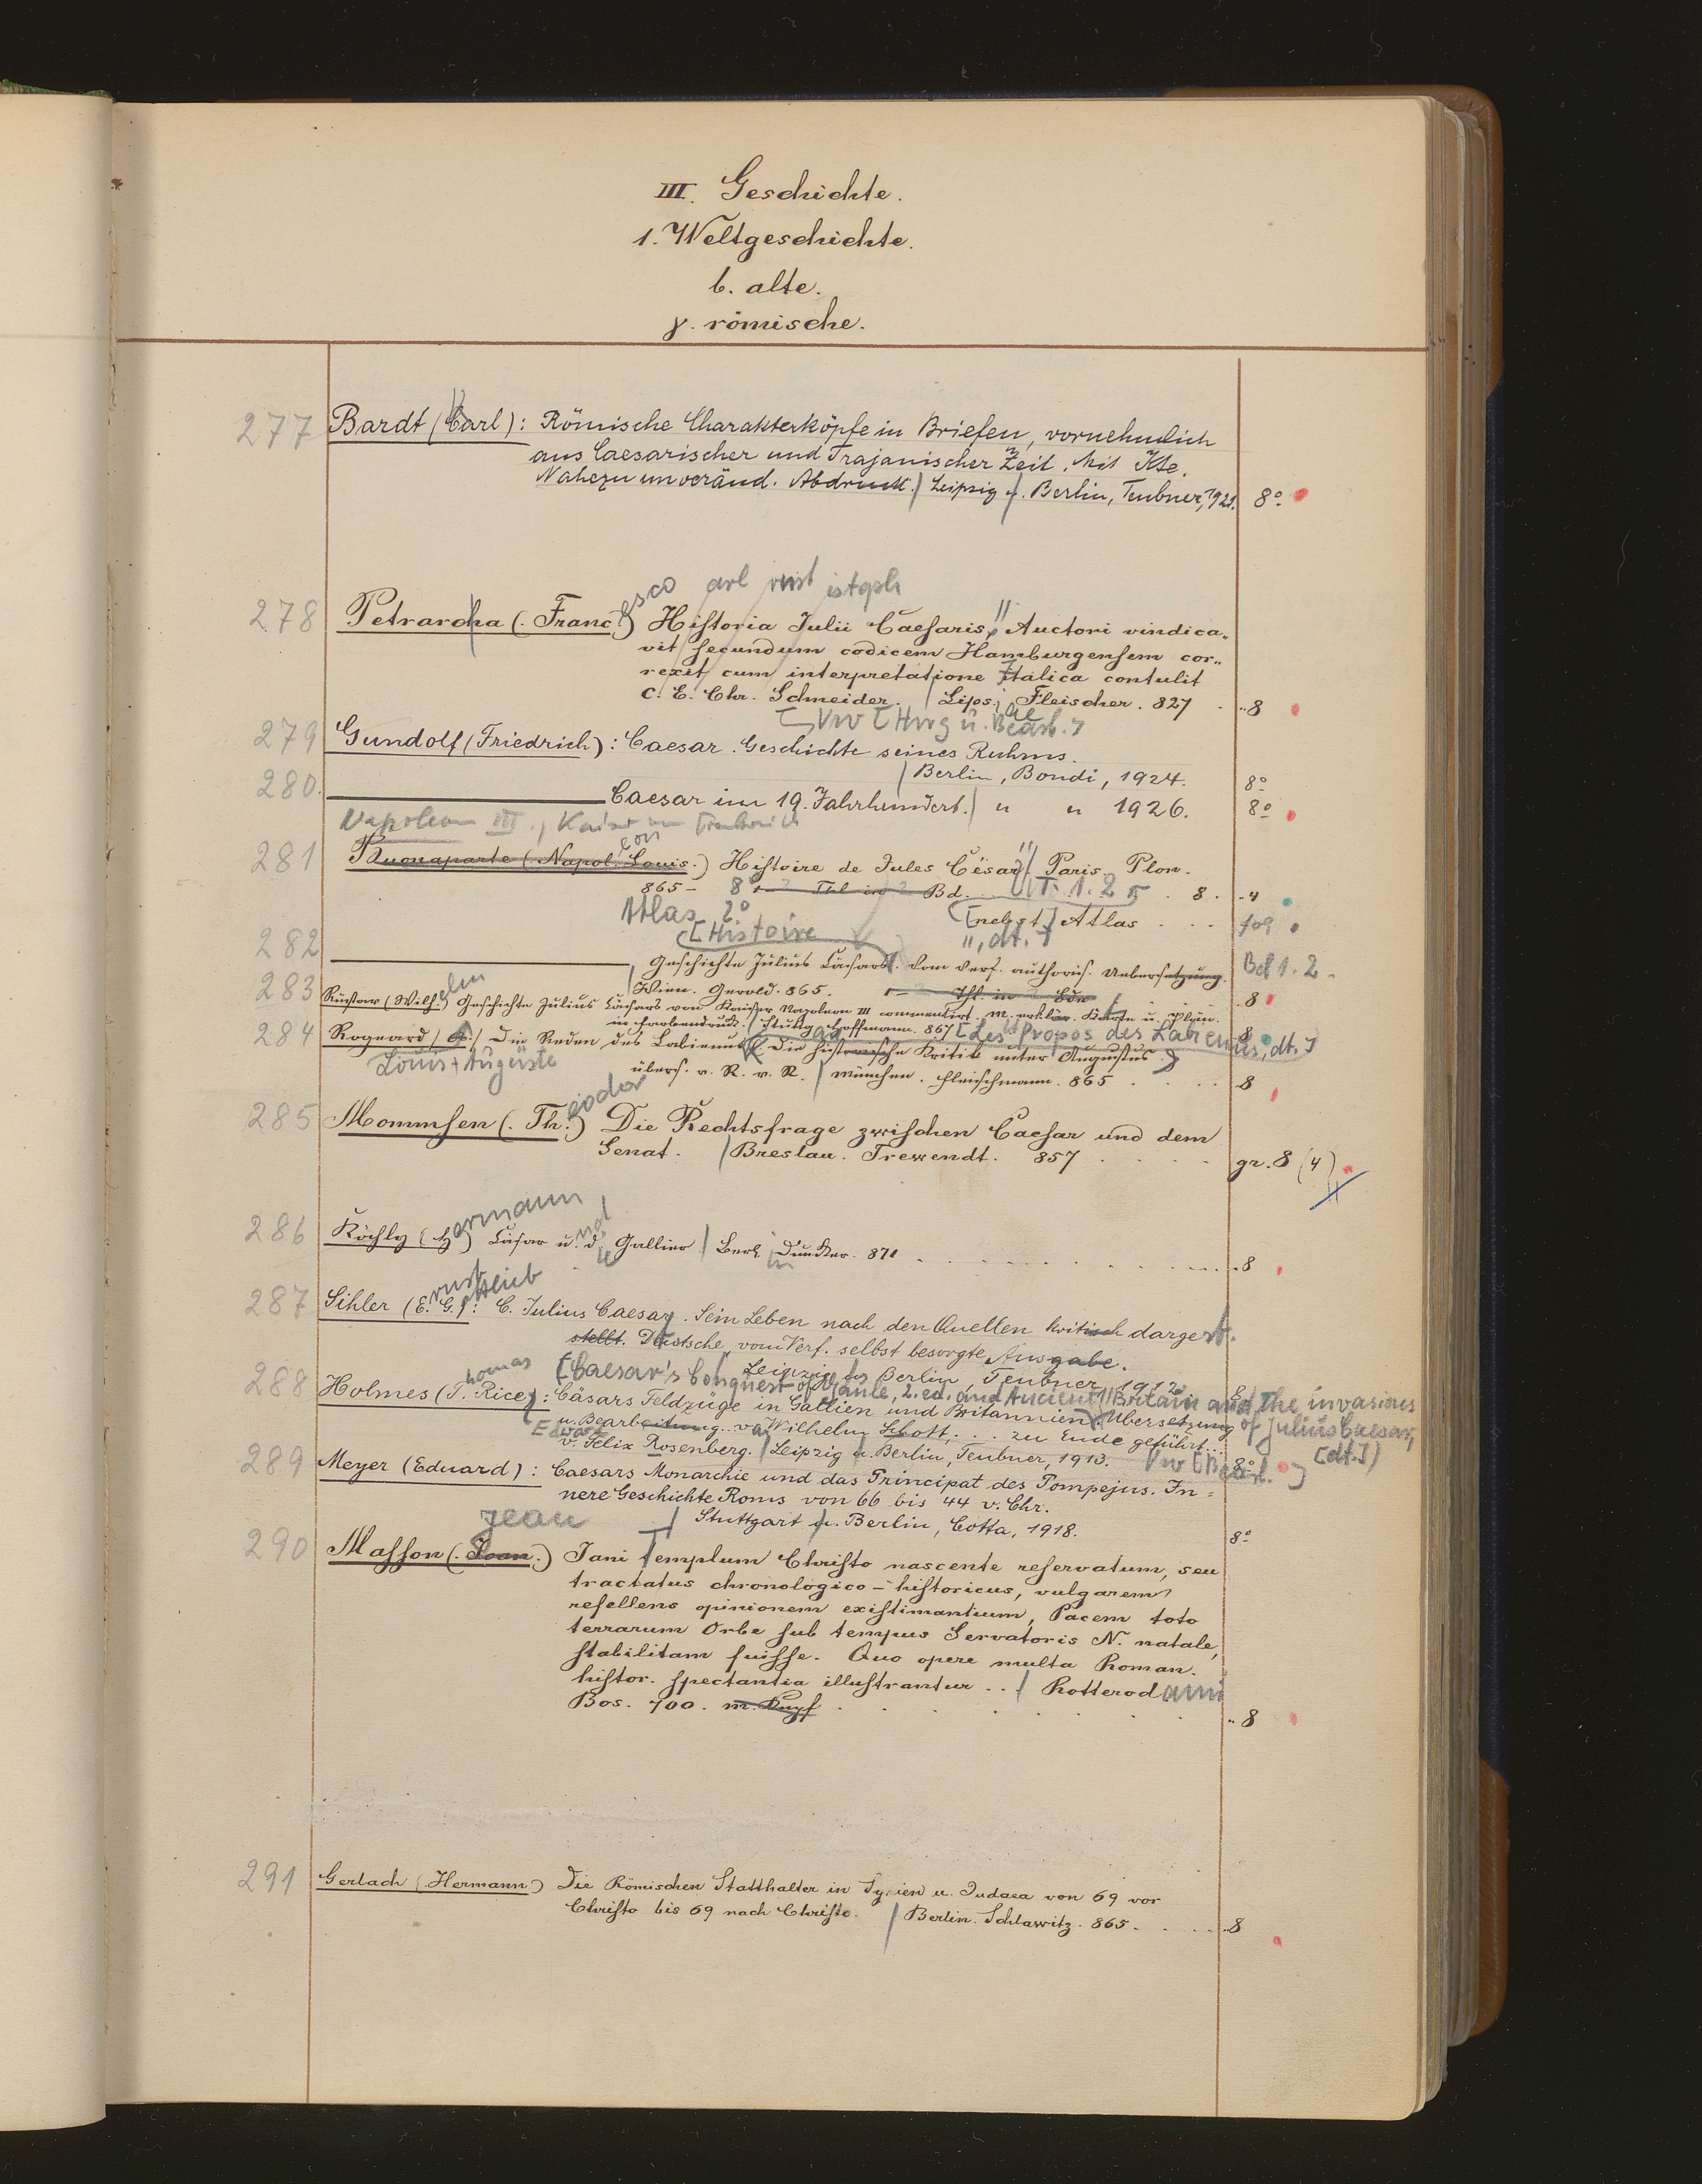 III. Geschichte.
1. Weltgeschichte.
b. alte.
γ. römische.
277 Bardt (Carl): Römische Charakterköpfe in Briefen, vornehmlich
aus Caesarischer und Trajanischer Zeit. Mit Kte.
Nahezu unveränd. Abdruck. Leipzig u. Berlin, Teubner, 1921. 8º
esco arl rnst istoph
278 Petrarcha (. Franc.) Historia Julii Caesaris. Auctori vindica„
vit secundum codicem Hamburgensem cor„
rexit cum interpretatione Italica contulit
C. E. Chr. Schneider. Lips. Fleischer. 827 . „8
ae
[Vw [Hrsg u. Bearb.]
279 Gundolf (Friedrich): Caesar. Geschichte seines Ruhms.
Berlin, Bondi, 1924. 8º
280. Caesar im 19. Jahrhundert. " " 1926. 8º
Napoleon III., Kaiser von Frankreich
eon
281 Buonaparte (Napol. Louis.) Histoire de Jules César. Paris. Plon.
865– 8º Thl in 2 Bd. T. 1. 2 . 8. „4
Atlas 2º [nebst] Atlas . . . fol
[Histoire ", dt.]
282 Geschichte Julius Cäsars. Vom Verf. authoris. Uebersetzung. Bd 1. 2.
Wien. Gerold. 865. Thl. in Bdn . . „8
elm
283 Rüstow (Wilh.) Geschichte Julius Cäsars von Kaiser Napoleon III commentirt. M. erklär. Karte u. Plän.
in Farbendruck. Stuttg. Hoffmann. 867 [Les Propos des Labienus, dt.] 8
284 Rogeard (A.) Die Reden des Labienus. (Die historische Kritik unter Augustus.)
Louis Auguste
übers. v. R. v. R. München. Fleischmann. 865 . . . . 8
eodor
285 Mommsen (. Th.) Die Rechtsfrage zwischen Caesar und dem
Senat. Breslau. Trewendt. 857 . . . . gr. 8 (4)
ermann nd
286 Köchly (H.) Cäsar u. d. Gallier. Berl. Duncker. 871 . . . . „8
ie in
rnst ottlieb
287 Sihler (E. G.): C. Julius Caesar. Sein Leben nach den Quellen kritisch dargest.
stellt. Deutsche, vom Verf. selbst besorgte Ausgabe.
Leipzig u. Berlin, Teubner, 1912. 8º
homas [Caesar's Conquest of Gaule, 2. ed. and Ancient Britain and the invasions
of Julius Caesar,
[dt.])
288 Holmes (T. Rice): Cäsars Feldzüge in Gallien und Britannien. Übersetzung
u. Bearbeitung v. Wilhelm Schott; . . . zu Ende geführt...
v. Felix Rosenberg. Leipzig u. Berlin, Teubner, 1913. 8º
Vw [Bearb.]
289 Meyer (Eduard): Caesars Monarchie und das Principat des Pompejus. In=
nere Geschichte Roms von 66 bis 44 v. Chr.
Stuttgart u. Berlin, Cotta, 1918. 8º
Jean
290 Masson (. Joan.) Jani templum Christo nascente reservatum, seu
tractatus chronologico-historicus, vulgarem
refellens opinionem existimantium, Pacem toto
terrarum Orbe sub tempus Servatoris N. natale,
stabilitam fuisse. Quo opere multa Roman.
histor. spectantia illustrantur . . Rotterodami
Bos. 700. m. Kupf . . . . „8
291 Gerlach (. Hermann) Die Römischen Statthalter in Syrien u. Judaea von 69 vor
Christo bis 69 nach Christo. Berlin. Schlawitz. 865. . . . „8